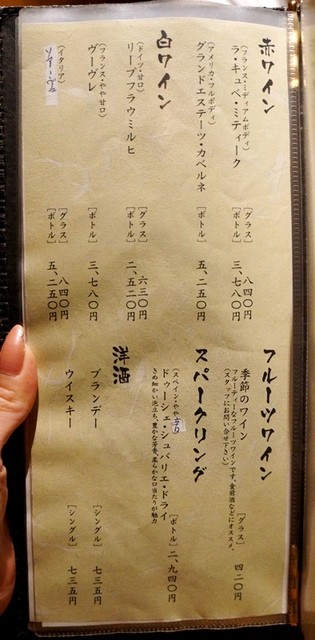 赤ワイン
(フランス・ミディアムボディ)
ラ・キュベ・ミティーク
[グラス] 八四〇円
[ボトル] 三、七八〇円
(アメリカ・フルボディ)
グランドエステーツ・カベルネ
[ボトル] 五、二五〇円
白ワイン
(ドイツ・甘口)
リープフラウミルヒ
[グラス] 六三〇円
[ボトル] 二、五二〇円
(フランス・やや甘口)
ヴーヴレ
[ボトル] 三、七八〇円
(イタリア)
ソアーヴェ
[グラス] 八四〇円
[ボトル] 五、二五〇円
フルーツワイン
季節のワイン
フルーティーなフルーツワインです。食前酒などにオススメ。
(スタッフにお問い合せ下さい)
[グラス] 四二〇円
スパークリング
(スペイン・やや辛口)
ドゥーシェ・シュバリエ・ドライ
きめ細かい泡立ち、豊かな芳香、柔らかな口当たりが魅力
[ボトル] 二、九四〇円
洋酒
ブランデー
[シングル] 七三五円
ウイスキー
[シングル] 七三五円